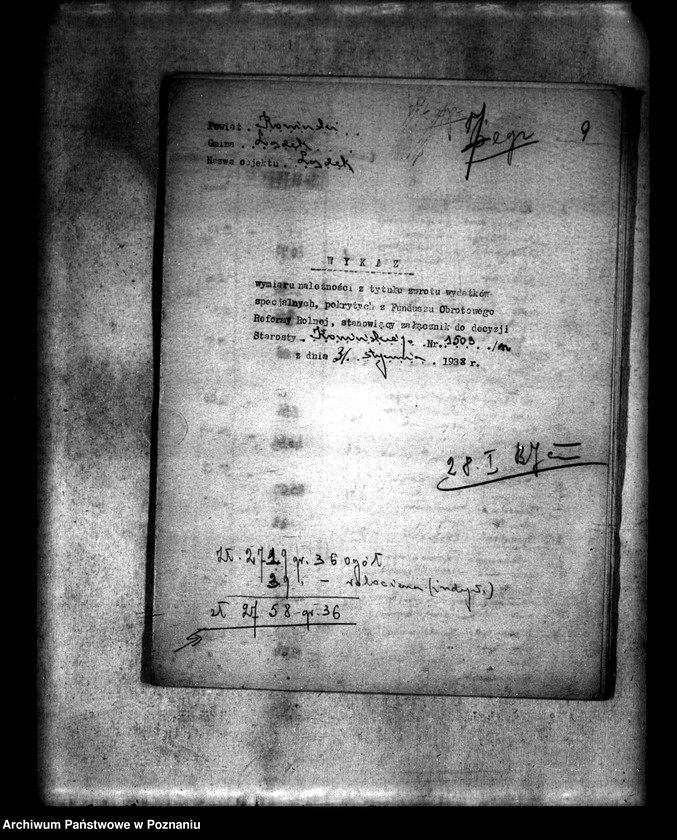 Powiat . Koniński . .
9
Gmina . Lądek . . . .
Nazwa objektu . . Lądek
W Y K A Z
wymiaru należności z tytułu zwrotu wydatków
specjalnych, pokrytych z Funduszu Obrotowego
Reformy Rolnej, stanowiący załącznik do decyzji
Starosty . Konińskiego . Nr. 1503 . /
z dnia 31. stycznia . 1938 r.
28. I
zł. 2719 gr. 36 ogół
39, –
zł 2758 gr. 36
Archiwum Państwowe w Poznaniu